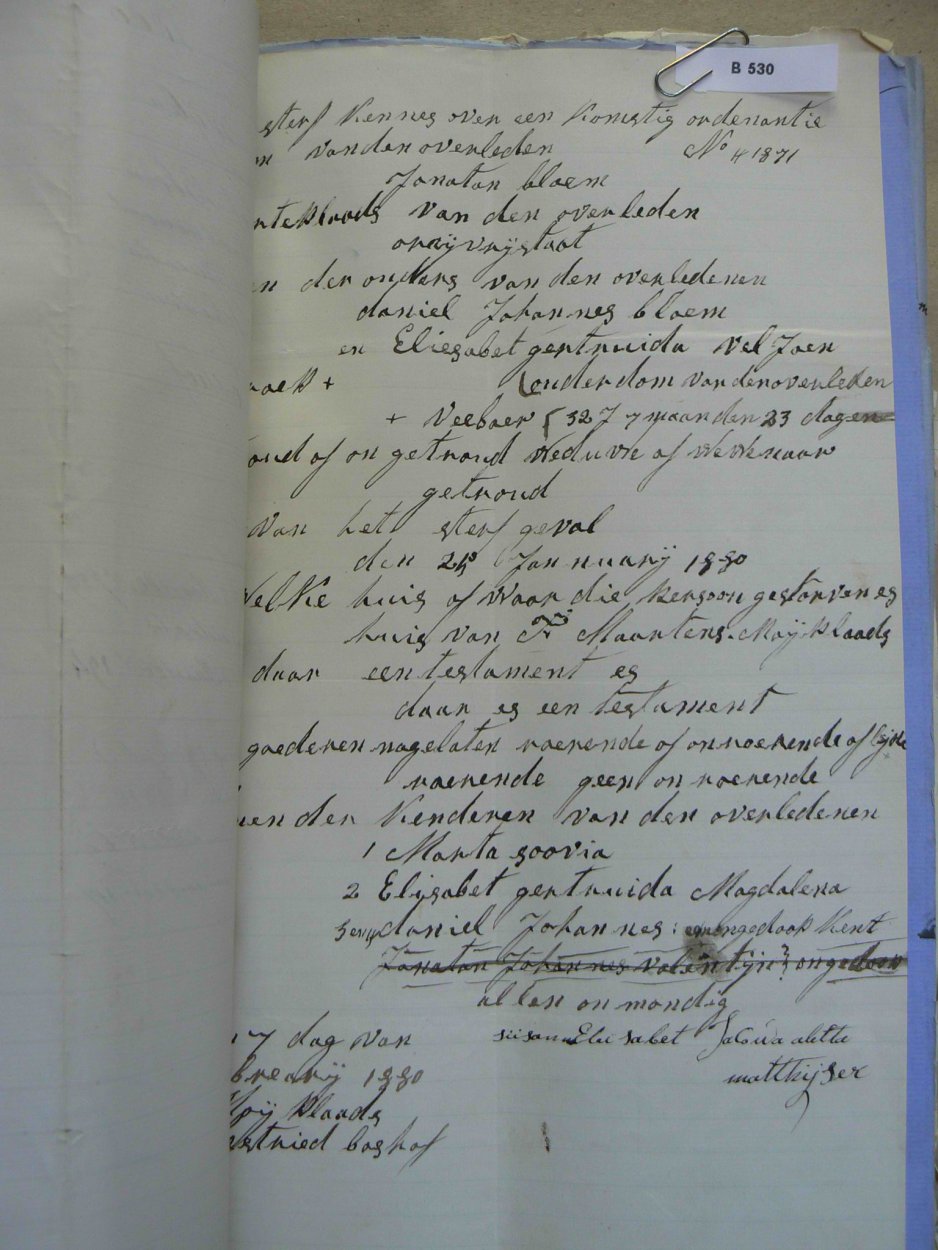 B 530
sterf Kennes over een Komstig ordenantie
van den overleden No 4 1871
Jonatan bloem
van den overleden
oraijvrijstaat
der ouders van den overledenen
daniel Johannes bloem
en Eliesabet gertruida Vel Joen
+ ouderdom van den overleden
+ Veeboer 32 J 7 maanden 23 dagen
oud of on getroud Weduwe of Wewenaar
getroud
Van het sterf geval
den 25 Jannuarij 1880
Welke huis of Waar die Persoon gestorven es
huis van Maartens Moij Plaads
daar een testament es
daar es een testament
goederen nagelaten roerende of onroerende of
roerende geen on roerende
der Kenderen van den overledenen
1 Marta soovia
2 Elisabet gertruida Magdalena
daniel Johannes: ongedoop Kent
Jonatan Johannes valentijn ongedoop
allen on mondig
7 dag van susanna Elisabet Jacoba aletta
1880 matthijser
Moij Plaads
boshof